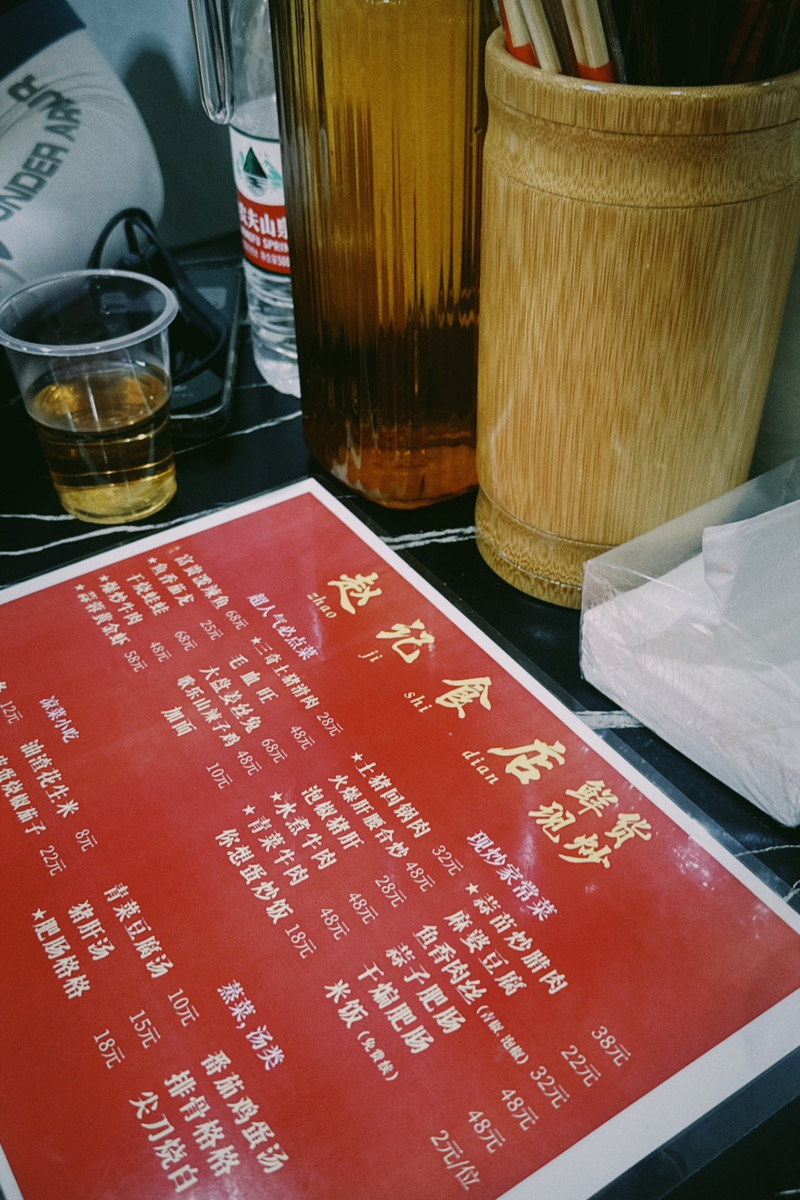 UNDER AR
农夫山泉
NGFU SPRIN
赵记食店
zhao ji shi dian
鲜货
现炒
超人气必点菜
68元
★鱼香茄龙 25元
68元
★爆炒牛肉 48元
★蒜蓉黄金虾 58元
28元
毛血旺 48元
大盘姜丝兔 68元
歌乐山辣子鸡 48元
加面 10元
现炒家常菜
★土猪回锅肉 32元
火爆肝腰合炒 48元
泡椒猪肝 28元
★水煮牛肉 48元
★青菜牛肉 48元
你想蛋炒饭 18元
★蒜苗炒腊肉 38元
麻婆豆腐 22元
鱼香肉丝(青椒,泡椒) 32元
蒜子肥肠 48元
干煸肥肠 48元
米饭(免费续) 2元/位
凉菜小吃
12元
油渣花生米 8元
皮蛋烧椒茄子 22元
蒸菜,汤类
青菜豆腐汤 10元
猪肝汤 15元
★肥肠格格 18元
番茄鸡蛋汤
排骨格格
尖刀烧白